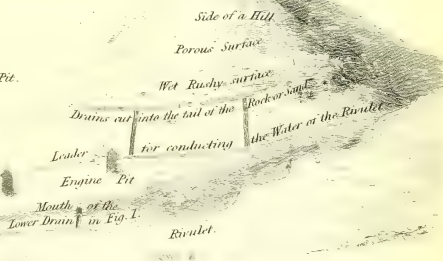 Side of a Hill.
Pit.
Porous Surface
Wet Rushy surface
Drains cut into the tail of the Rock or Sand
for conducting the Water of the Rivulet
Leader
Engine Pit
Mouth of the
Lower Drain in Fig. 1.
Rivulet.